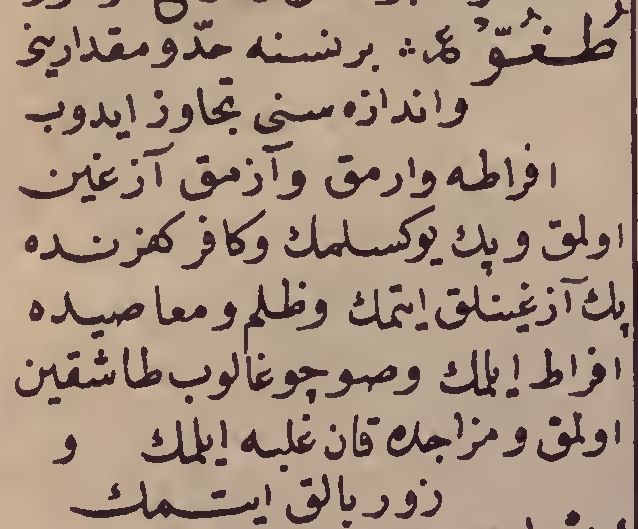 طُغُوّ ع؞ بر نسنه حدّ و مقدارینی
و اندازه سنی تجاوز ایدوب
افراطه وارمق و آزمق آزغین
اولمق و پك یوكسلمك و كافر كفرنده
پك آزغینلق ایتمك و ظلم و معاصیده
افراط ایلمك و صو چوغالوب طاشقین
اولمق و مزاجده قان غلبه ایلمك و
زوربالق ایتمك